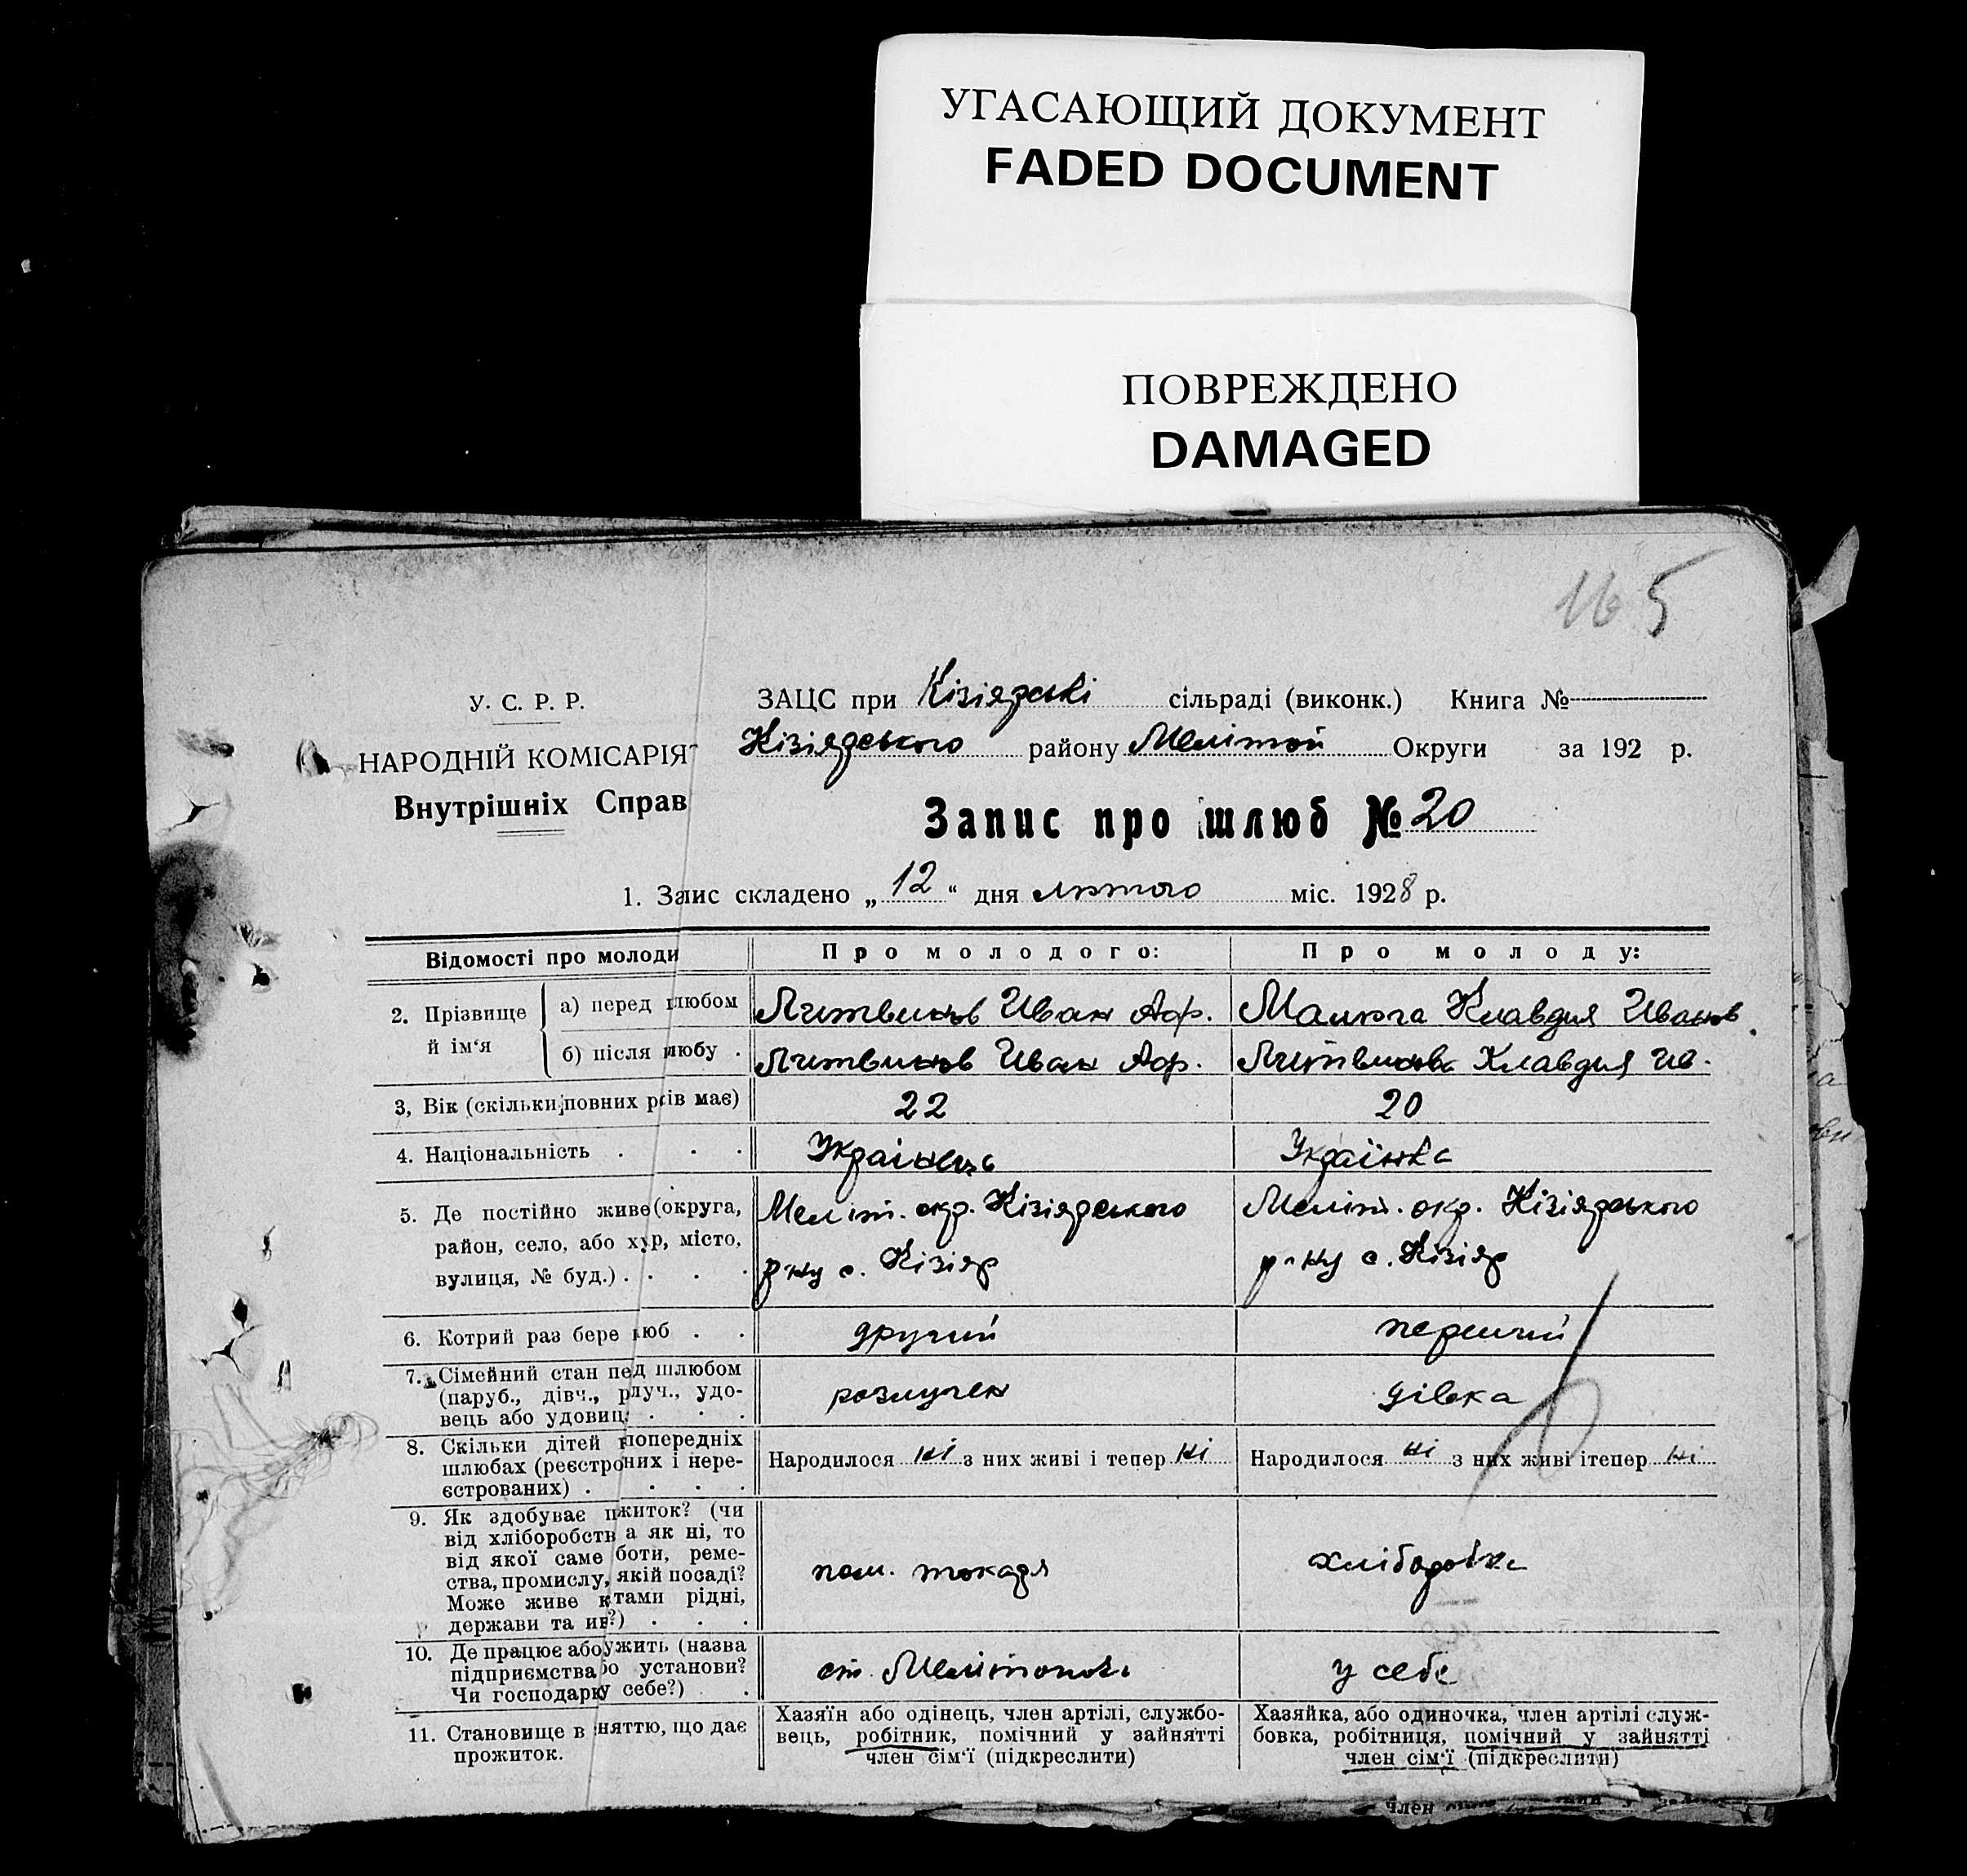 УГАСАЮЩИЙ ДОКУМЕНТ
FADED DOCUMENT
ПОВРЕЖДЕНО
DAMAGED
165
У. С. Р. Р.
НАРОДНІЙ КОМІСАРІЯТ
Внутрішніх Справ
ЗАЦС при Кізіярські сільраді (виконк.) Книга №
Кізіярського району Меліт́ой Округи за 192 р.
Запис про шлюб № 20
1. Запис складено „ 12 “ дня лютого міс. 1928 р.
Відомості про молоди
Про молодого:
Про молоду:
2. Прізвище й ім‘я
а) перед шлюбом
Литвинов Иван Аф.
Малюга Клавдия Иванов.
б) після шлюбу .
Литвинов Иван Аф.
Литвинова Клавдия Ив.
3, Вік (скільки повних рсів має)
22
20
4. Національність . . .
Украінець
Українка
5. Де постійно живе (округа,
район, село, або хур, місто,
вулиця, № буд.) . . . .
Меліт. окр. Кізіярського
рну с. Кізіяр
Меліт. окр. Кізіярського
р-ну с. Кізіяр
6. Котрий раз бере люб . .
другий
перший
7. Сімейний стан пед шлюбом
(паруб., дівч., рлуч., удо-
вець або удовиц . . .
розлучен
дівка
8. Скільки дітей попередніх
шлюбах (реєстроних і нере-
єстрованих) . . . .
Народилося ні з них живі і тепер ні
Народилося ні з них живі ітепер ні
9. Як здобуває пжиток? (чи
від хліборобств а як ні, то
від якої саме боти, реме-
ства, промислу, якій посаді?
Може живе ктами рідні,
держави та ин?) . . .
пом. токаря
хліборобка
10. Де працює або ужить (назва
підприємства о установи?
Чи господарку себе?) .
ст. Мелітополь
у себе
11. Становище в няттю, що дає
прожиток.
Хазяїн або одінець, член артілі, службо-
вець, робітник, помічний у зайнятті
член сім‘ї (підкреслити)
Хазяйка, або одиночка, член артілі служ-
бовка, робітниця, помічний у зайнятті
член сім‘ї (підкреслити)
член